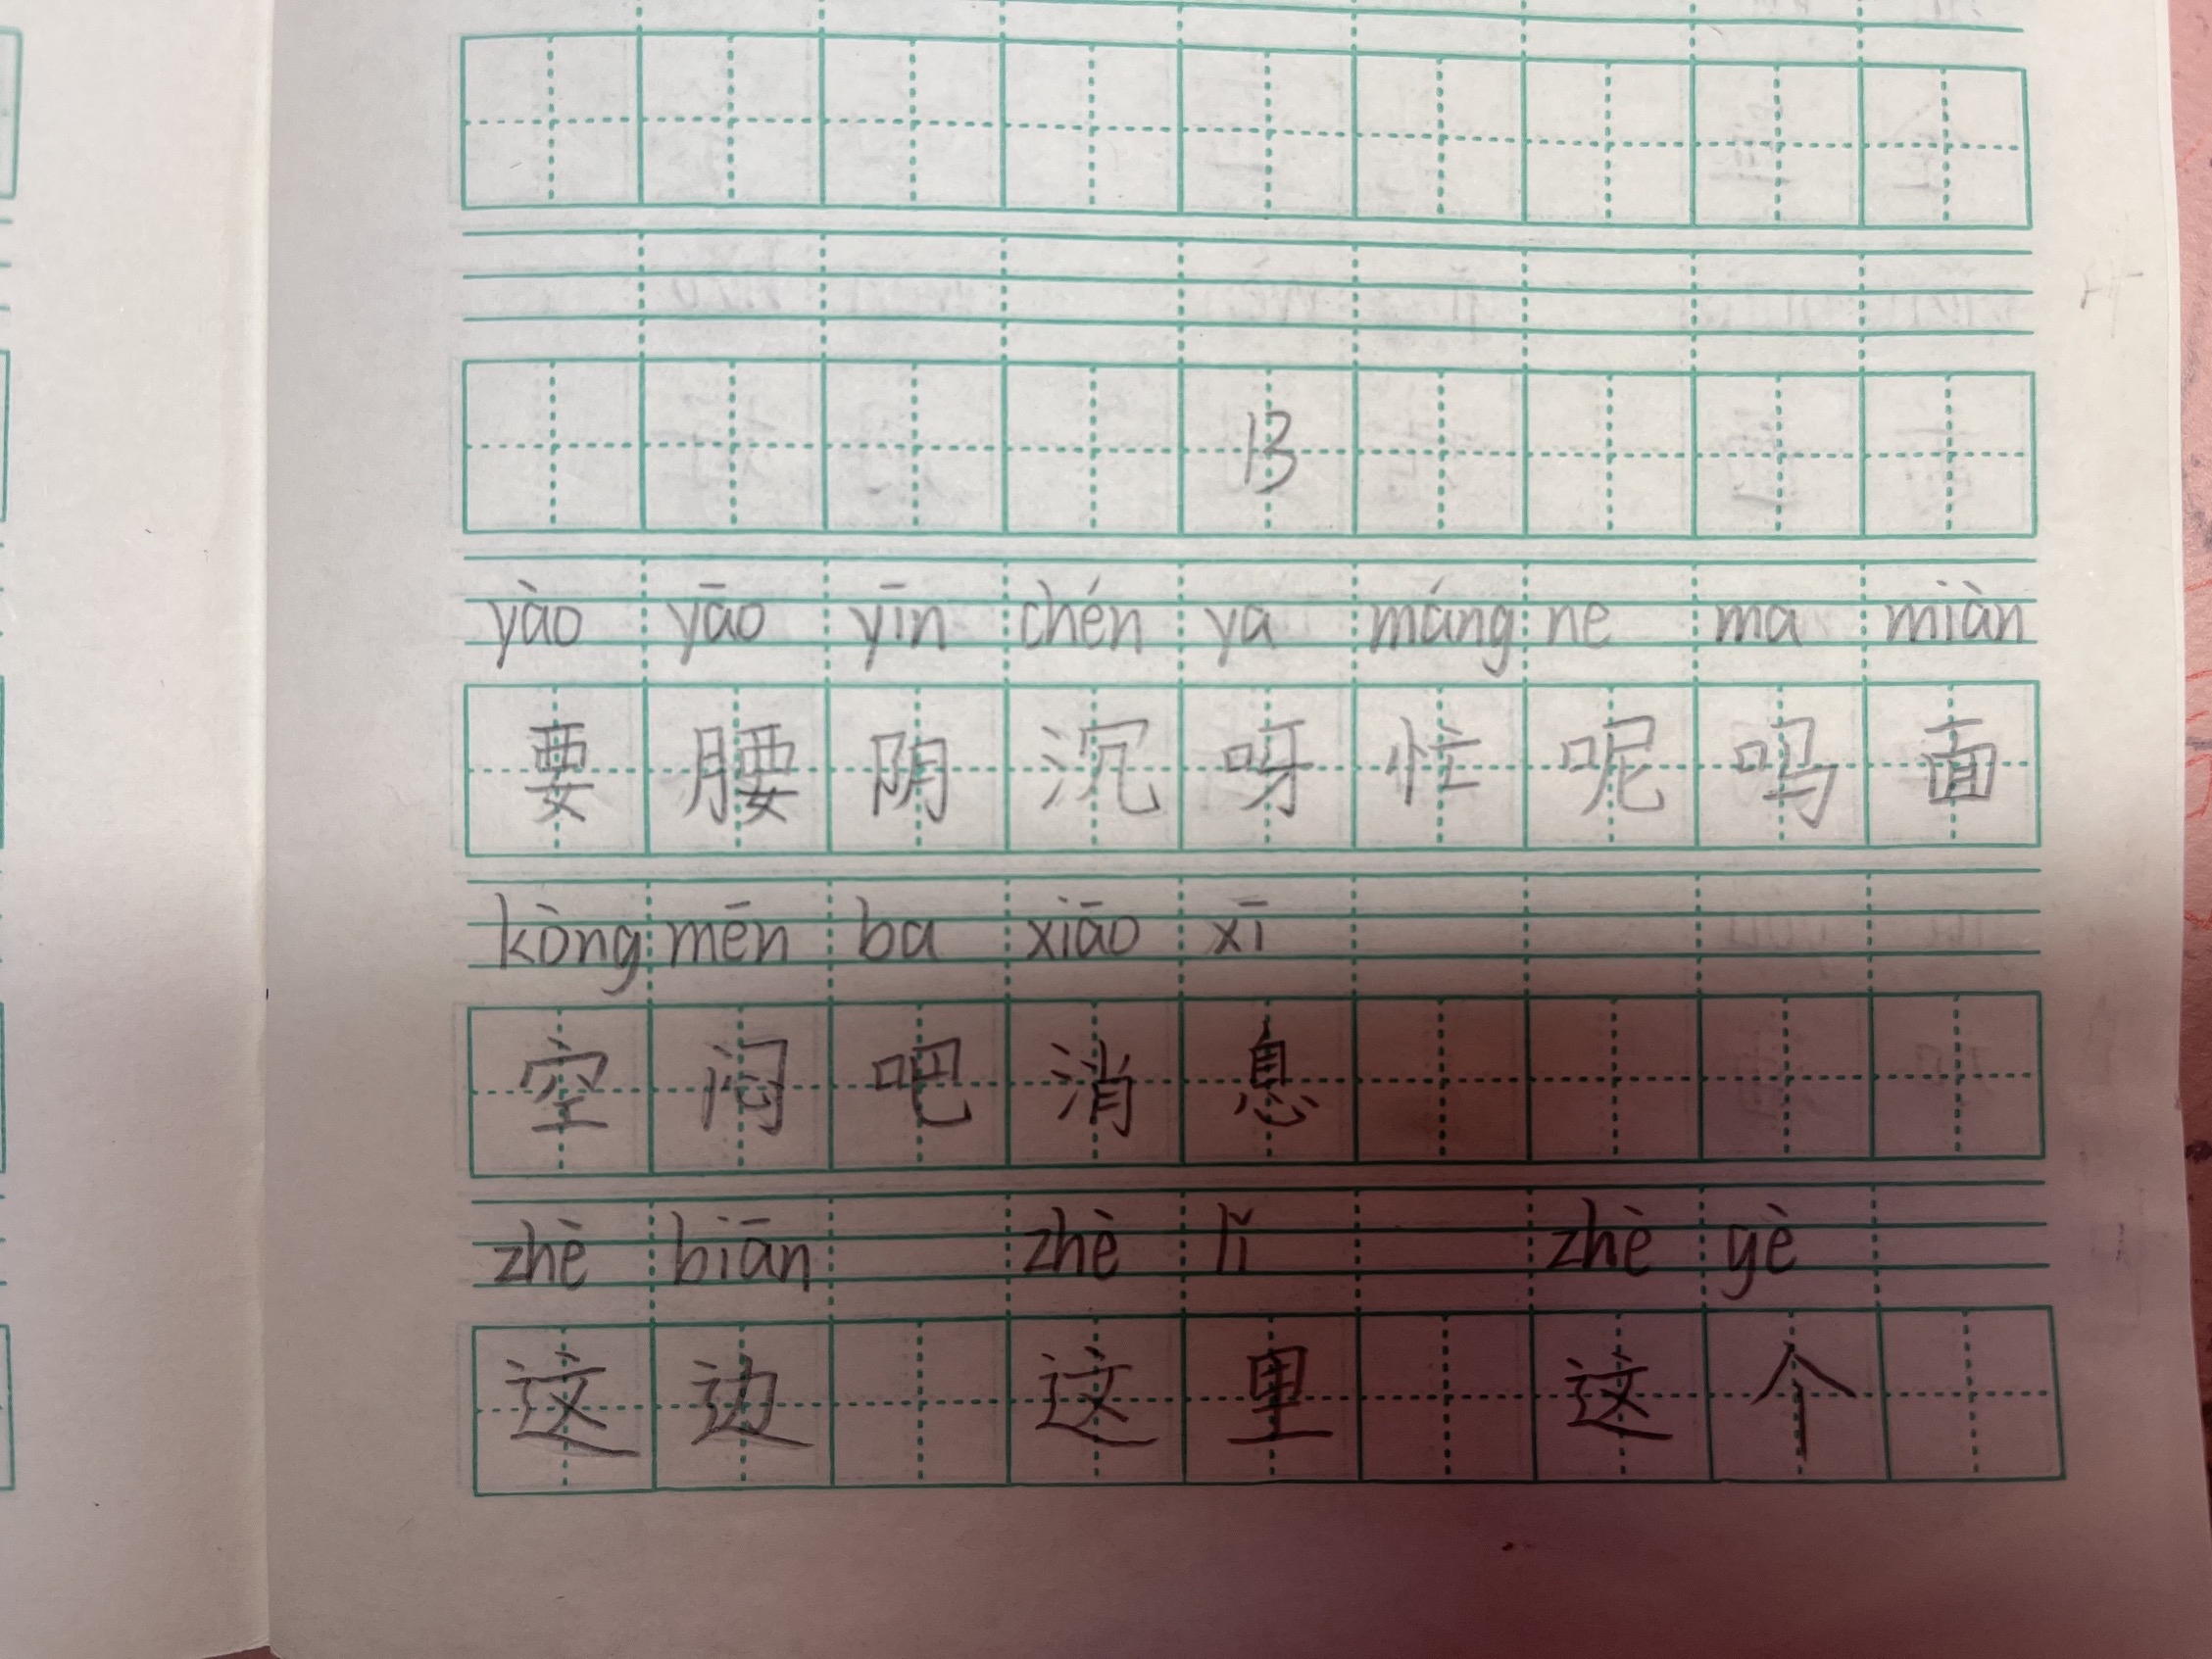 13
yào yāo yīn chén ya máng ne ma miàn
要 腰 阴 沉 呀 忙 呢 吗 面
kòng mēn ba xiāo xī
空 闷 吧 消 息
zhè biān zhè lǐ zhè gè
这 边 这 里 这 个